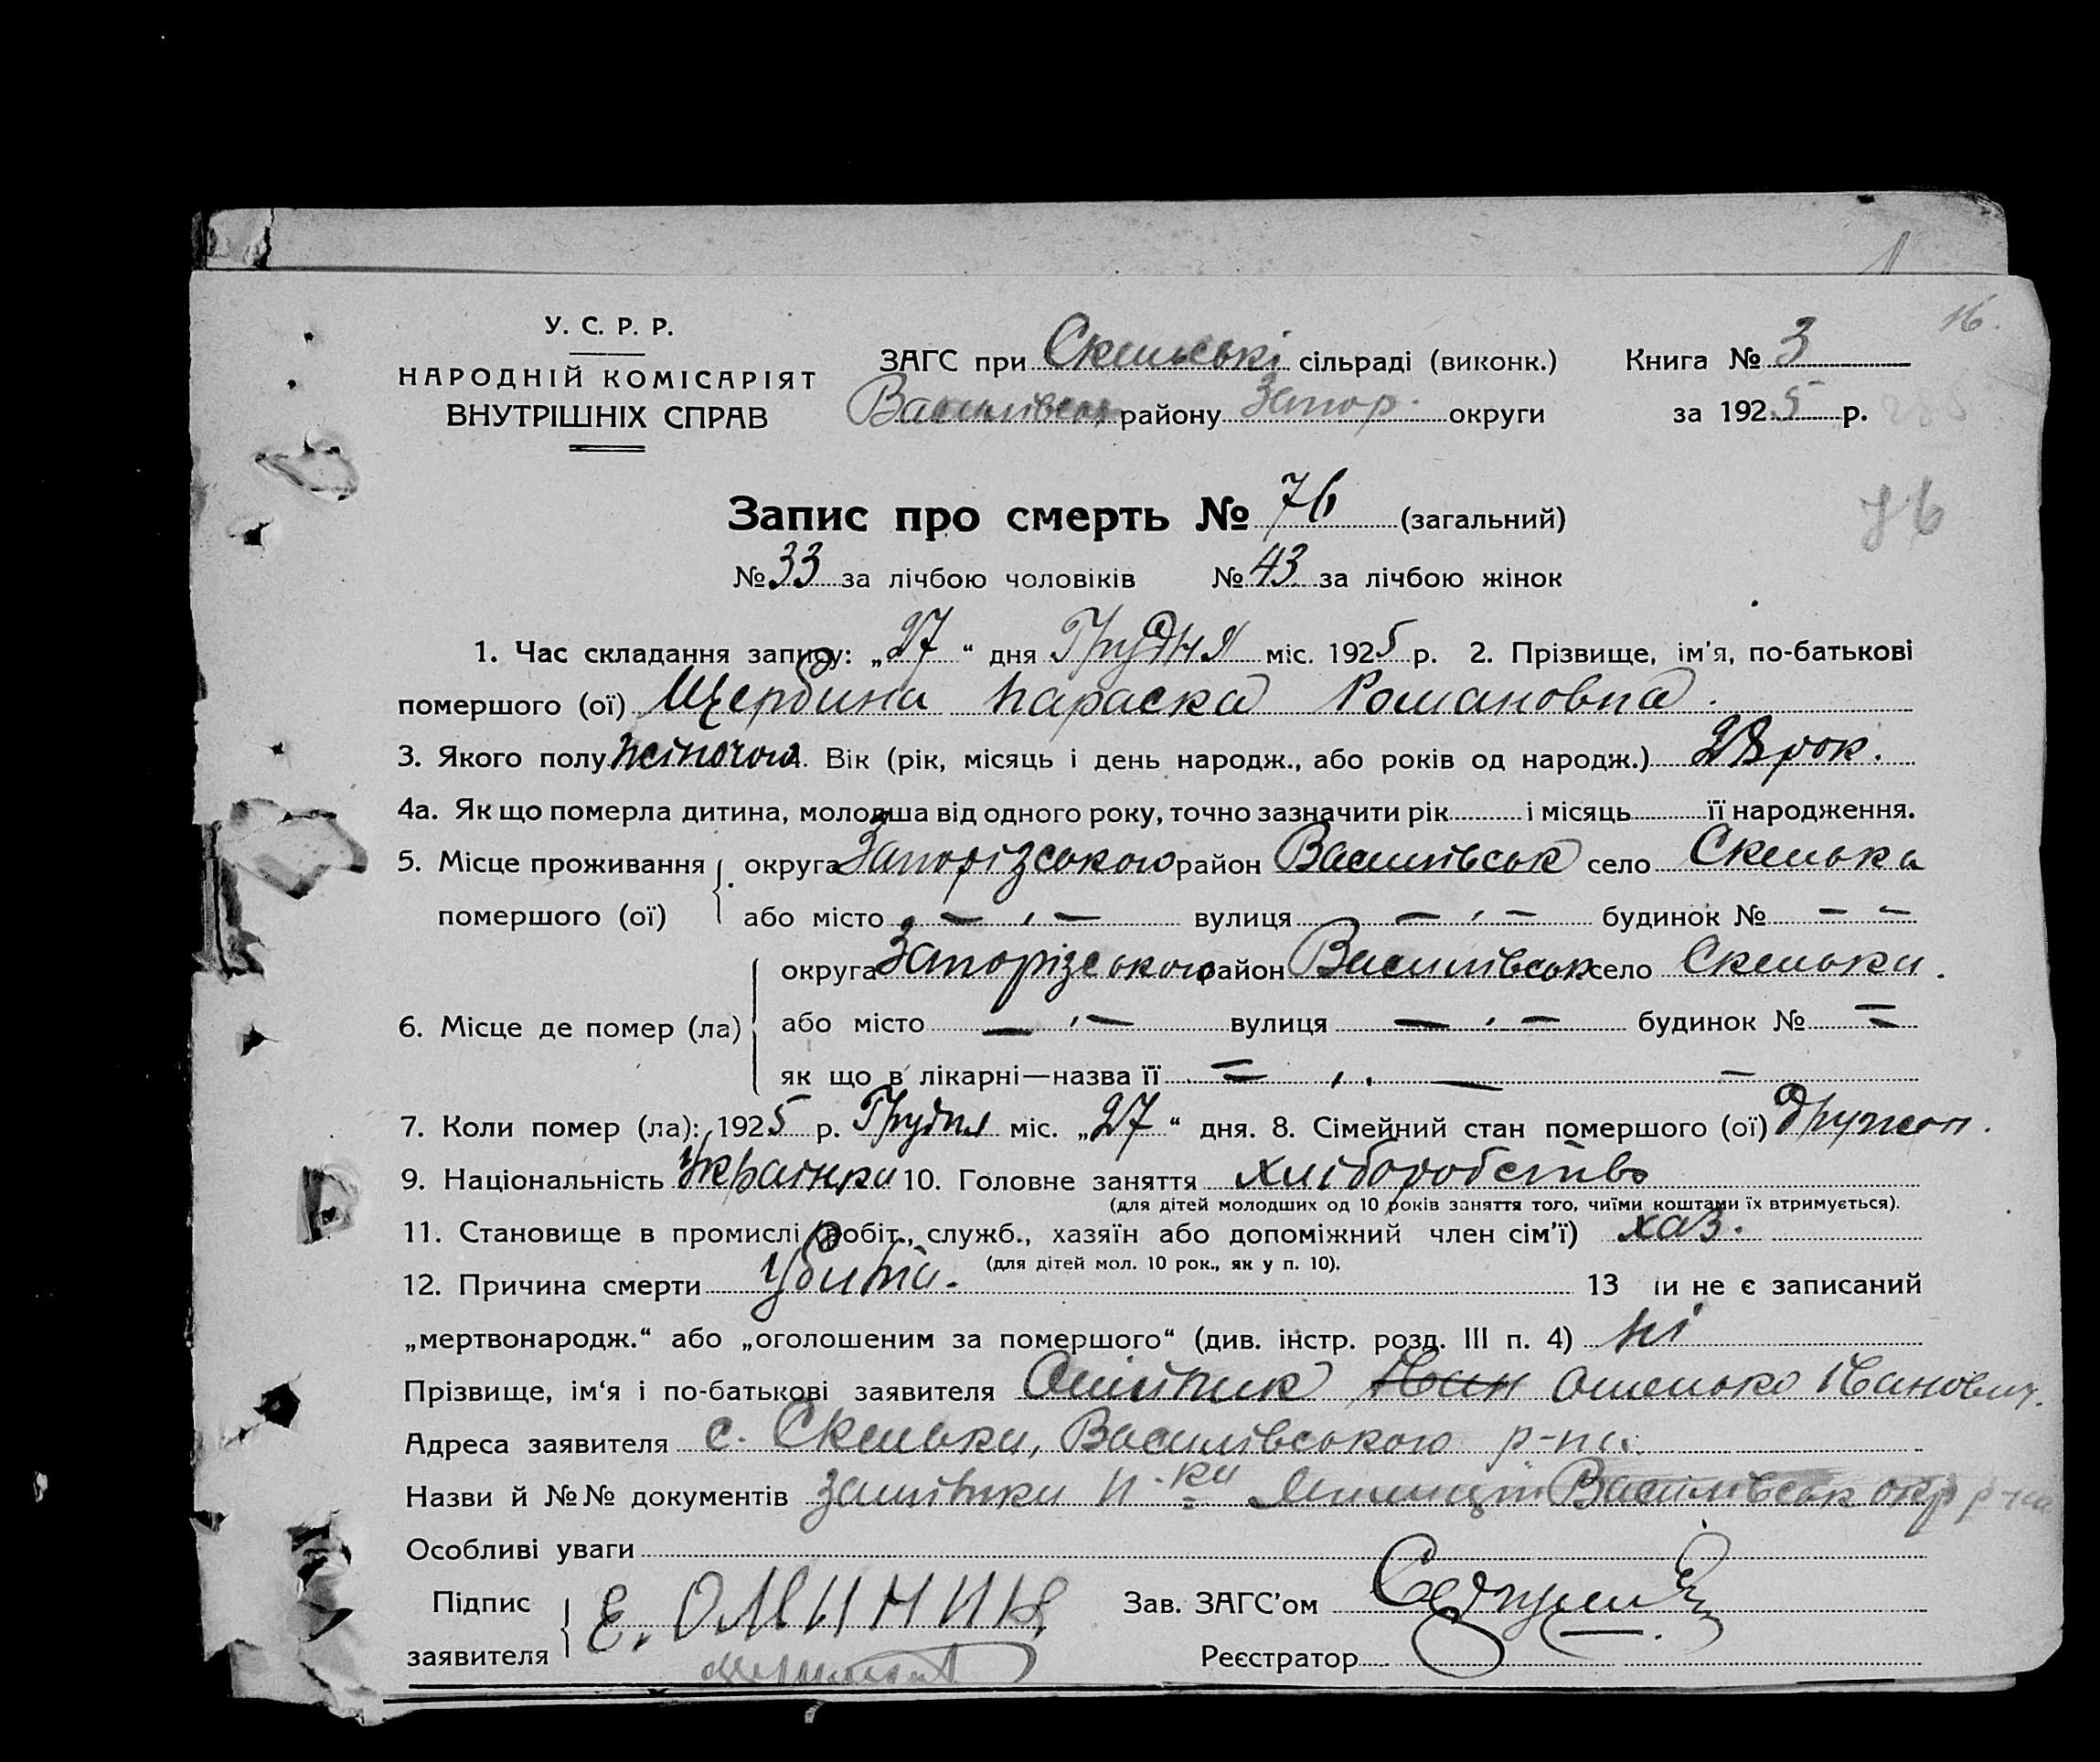 16.
У. С. Р. Р.
НАРОДНІЙ КОМІСАРІЯТ
ВНУТРІШНІХ СПРАВ
ЗАГС при Скельські сільраді (виконк.) Книга № 3
Василівськ району Запор. округи за 1925 р.
Запис про смерть № 76 (загальний)
76
№ 33 за лічбою чоловіків № 43 за лічбою жінок
1. Час складання запису: „27“ дня Грудня міс. 1925 р. 2. Прізвище, ім'я, по-батькові
помершого (ої) Щербина Параска Романовна.
3. Якого полу жіночого. Вік (рік, місяць і день народж., або років од народж.) 28 рок.
4а. Як що померла дитина, молодша від одного року, точно зазначити рік і місяць її народження.
5. Місце проживання помершого (ої) округа Запорізського район Василівськ село Скелька
або місто — „ — вулиця — „ — будинок № — —
6. Місце де помер (ла) округа Запорізського район Василівськ село Скельки.
або місто — „ — вулиця — „ — будинок № —
як що в лікарні—назва її — „ — —
7. Коли помер (ла): 1925 р. Грудня міс. „27“ дня. 8. Сімейний стан помершого (ої) Дружон.
9. Національність Українка 10. Головне заняття хліборобство
(для дітей молодших од 10 років заняття того, чиїми коштами їх втримується).
11. Становище в промислі (робіт., служб., хазяїн або допоміжний член сім'ї) хаз.
(для дітей мол. 10 рок., як у п. 10).
12. Причина смерти убита. 13 чи не є записаний
„мертвонародж.“ або „оголошеним за помершого“ (див. інстр. розд. III п. 4) ні
Прізвище, ім'я і по-батькові заявителя Олійник Омелько Іванович.
Адреса заявителя с. Скельки, Василівського р-на.
Назви й №№ документів замітки н-ка Міліції Василівськ
Особливі уваги
Підпис заявителя Е. Олиниик Зав. ЗАГС'ом
Реєстратор